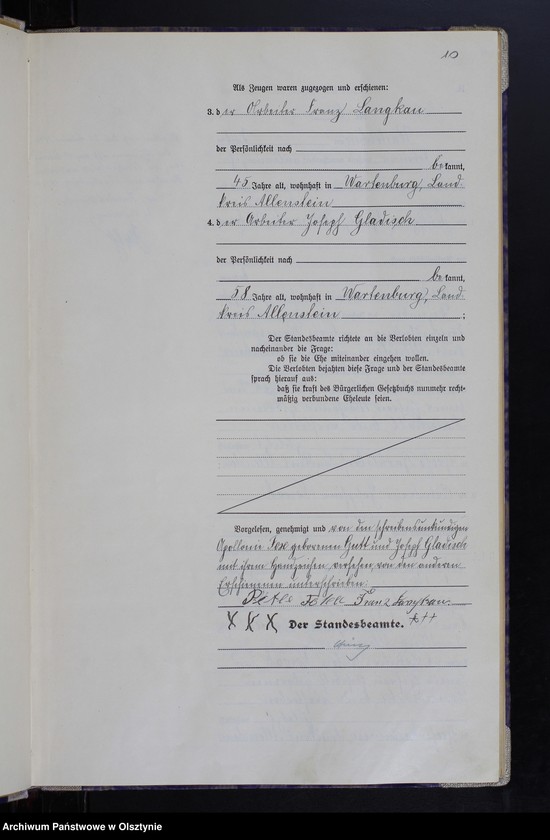 10
Als Zeugen waren zugezogen und erschienen:
3. der Arbeiter Franz Langkau
der Persönlichkeit nach
bekannt,
45 Jahre alt, wohnhaft in Wartenburg, Land-
kreis Allenstein
4. der Arbeiter Joseph Gladisch
der Persönlichkeit nach
bekannt,
58 Jahre alt, wohnhaft in Wartenburg, Land-
kreis Allenstein ;
Der Standesbeamte richtete an die Verlobten einzeln und
nacheinander die Frage:
ob sie die Ehe miteinander eingehen wollen.
Die Verlobten bejahten diese Frage und der Standesbeamte
sprach hierauf aus:
daß sie kraft des Bürgerlichen Gesetzbuchs nunmehr recht-
mäßig verbundene Eheleute seien.
Vorgelesen, genehmigt und von den schreibensunkundigen
Apollonia geborenen Gutt und Joseph Gladisch
mit ihrem Handzeichen versehen, von den anderen
Erschienenen unterschrieben:
Franz Langkau.
XXX Der Standesbeamte. +++
Archiwum Państwowe w Olsztynie